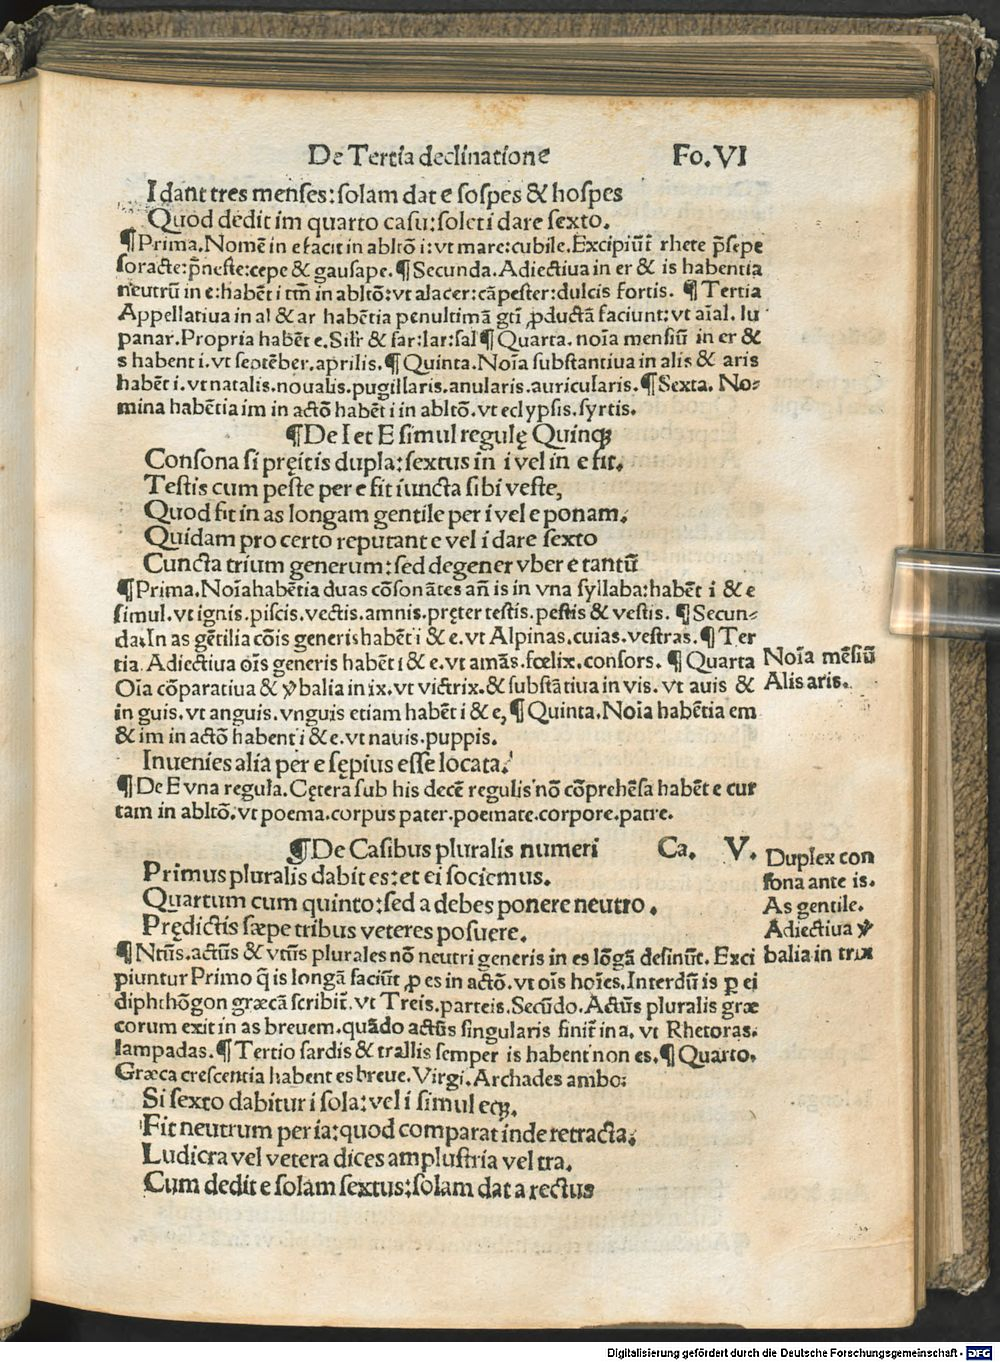 De Tertia declinatione Fo.VI
I dant tres menses:solam dat e sospes & hospes
Quod dedit im quarto casu:solet i dare sexto.
¶Prima.Nomē in e facit in abltō i:vt mare:cubile.Excipiūt̄ rhete p̄sepe
soracte:p̄neste:cepe & gausape.¶Secunda.Adiectiua in er & is habentia
neutrū in e:habēt i tm̄ in abltō:vt alacer:cāpester:dulcis fortis. ¶Tertia
Appellatiua in al & ar habētia penultimā gtī ꝓductā faciunt:vt aīal. lu
panar.Propria habēt e. & far:lar:sal¶Quarta.noīa mensiū in er &
s habent i.vt septēber.aprilis.¶Quinta.Noīa substantiua in alis & aris
habēt i.vt natalis.noualis.pugillaris.anularis.auricularis.¶Sexta. No⸗
mina habētia im in actō habēt i in abltō.vt eclypsis.syrtis.
¶De I et E simul regulę Quinqꝫ
Consona si pręitis dupla:sextus in i vel in e fit.
Testis cum peste per e fit iuncta sibi veste,
Quod fit in as longam gentile per i vel e ponam.
Quidam pro certo reputant e vel i dare sexto
Cuncta trium generum:sed degener vber e tantū
¶Prima.Noīa habētia duas cōsonātes añ is in vna syllaba:habēt i & e
simul.vt ignis.piscis.vectis.amnis.pręter testis.pestis & vestis. ¶Secun⸗
da.In as gētilia cōis generis habēt i & e.vt Alpinas.cuias.vestras.¶Ter
tia.Adiectiua oīs generis habēt i & e.vt amās.fœlix.consors. ¶Quarta
Oīa cōparatiua & v̓balia in ix.vt victrix.& substātiua in vis. vt auis &
in guis.vt anguis.vnguis etiam habēt i & e,¶Quinta.Noīa habētia em
& im in actō habent i & e.vt nauis.puppis.
Noīa mēsiū
Alis aris.
Inuenies alia per e sępius esse locata.
¶De E vna regula.Cętera sub his decē regulis nō cōprehēsa habēt e cur
tam in abltō.vt poema.corpus pater.poemate.corpore.patre.
¶De Casibus pluralis numeri Ca. V.
Primus pluralis dabit es:et ei sociemus.
Quartum cum quinto:sed a debes ponere neutro.
Prędictis sæpe tribus veteres posuere.
Duplex con
sona ante is.
As gentile.
Adiectiua v̓
balia in trix
¶Ntūs.actūs & vtūs plurales nō neutri generis in es lōgā desinūt. Exci
piuntur Primo q̄ is longā faciūt ꝓ es in actō.vt oīs hoīes.Interdū is ꝑ ei
diphthōgon græcā scribit̄.vt Treis.parteis.Secūdo.Actūs pluralis græ
corum exit in as breuem.quādo actūs singularis finit̄ in a. vt Rhetoras.
lampadas.¶Tertio sardis & trallis semper is habent non es.¶Quarto.
Græca crescentia habent es breue.Virgi.Archades ambo:
Si sexto dabitur i sola:vel i simul eqꝫ.
Fit neutrum per ia:quod comparat inde retracta.
Ludicra vel vetera dices amplustria vel tra.
Cum dedit e solam sextus:solam dat a rectus
Digitalisierung gefördert durch die Deutsche Forschungsgemeinschaft - DFG